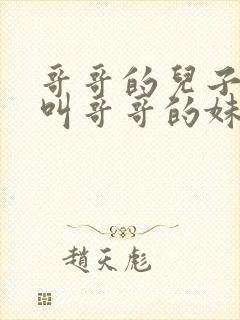 哥哥的兒子
叫哥哥的妹
趙天彪